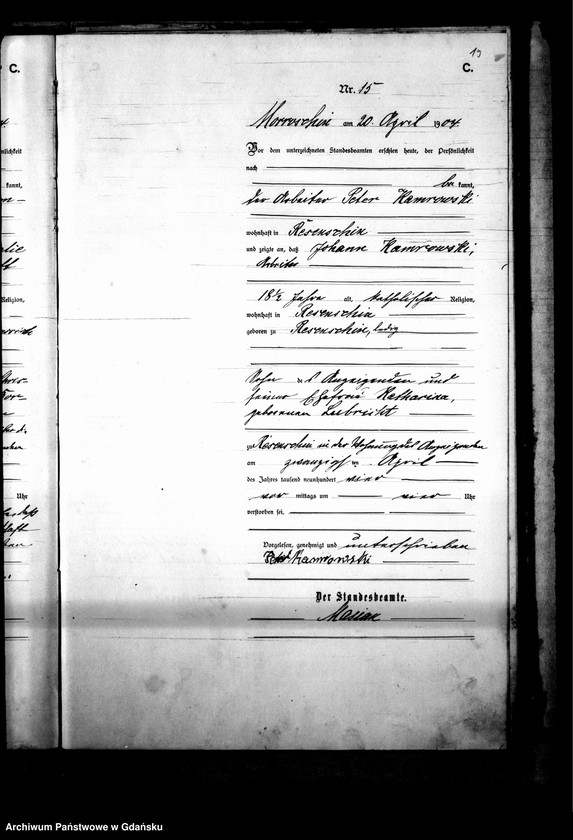 C.
19
C.
Nr. 15
Morroschin am 20. April 1904.
Vor dem unterzeichneten Standesbeamten erschien heute, der Persönlichkeit
nach
be kannt,
der Arbeiter Peter Kamrowski
wohnhaft in Resenschin
und zeigte an, daß Johann Kamrowski,
Arbeiter
18½ Jahre alt, katholischer Religion,
wohnhaft in Resenschin
geboren zu Resenschin, ledig
Sohn des Anzeigenden und
seiner Ehefrau Katharina,
geborenen Liebricht
zu Resenschin in der Wohnung des Anzeigenden
am zwanzigsten April
des Jahres tausend neunhundert vier
vor mittags um vier Uhr
verstorben sei.
Vorgelesen, genehmigt und unterschrieben
Kamrowski
Der Standesbeamte.
Archiwum Państwowe w Gdańsku